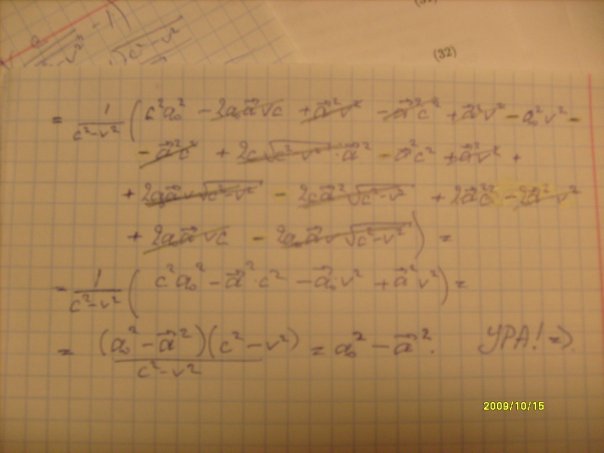 (32)
= 1/(c²-v²) ( c²a₀² - 2a₀a⃗vc + a⃗²v² - a⃗²c² + a⃗²v² - a₀²v² -
- a⃗²c² + 2c√(c²-v²)·a⃗² - a⃗²c² + a⃗²v² +
+ 2a₀a⃗v√(c²-v²) - 2ca⃗²√(c²-v²) + 2a⃗²c² - 2a⃗²v²
+ 2a₀a⃗vc - 2a₀a⃗v√(c²-v²) ) =
= 1/(c²-v²) ( c²a₀² - a⃗²·c² - a⃗₀v² + a⃗²v² ) =
= (a₀² - a⃗²)(c² - v²)/(c²-v²) = a₀² - a⃗². УРА! =).
2009/10/15